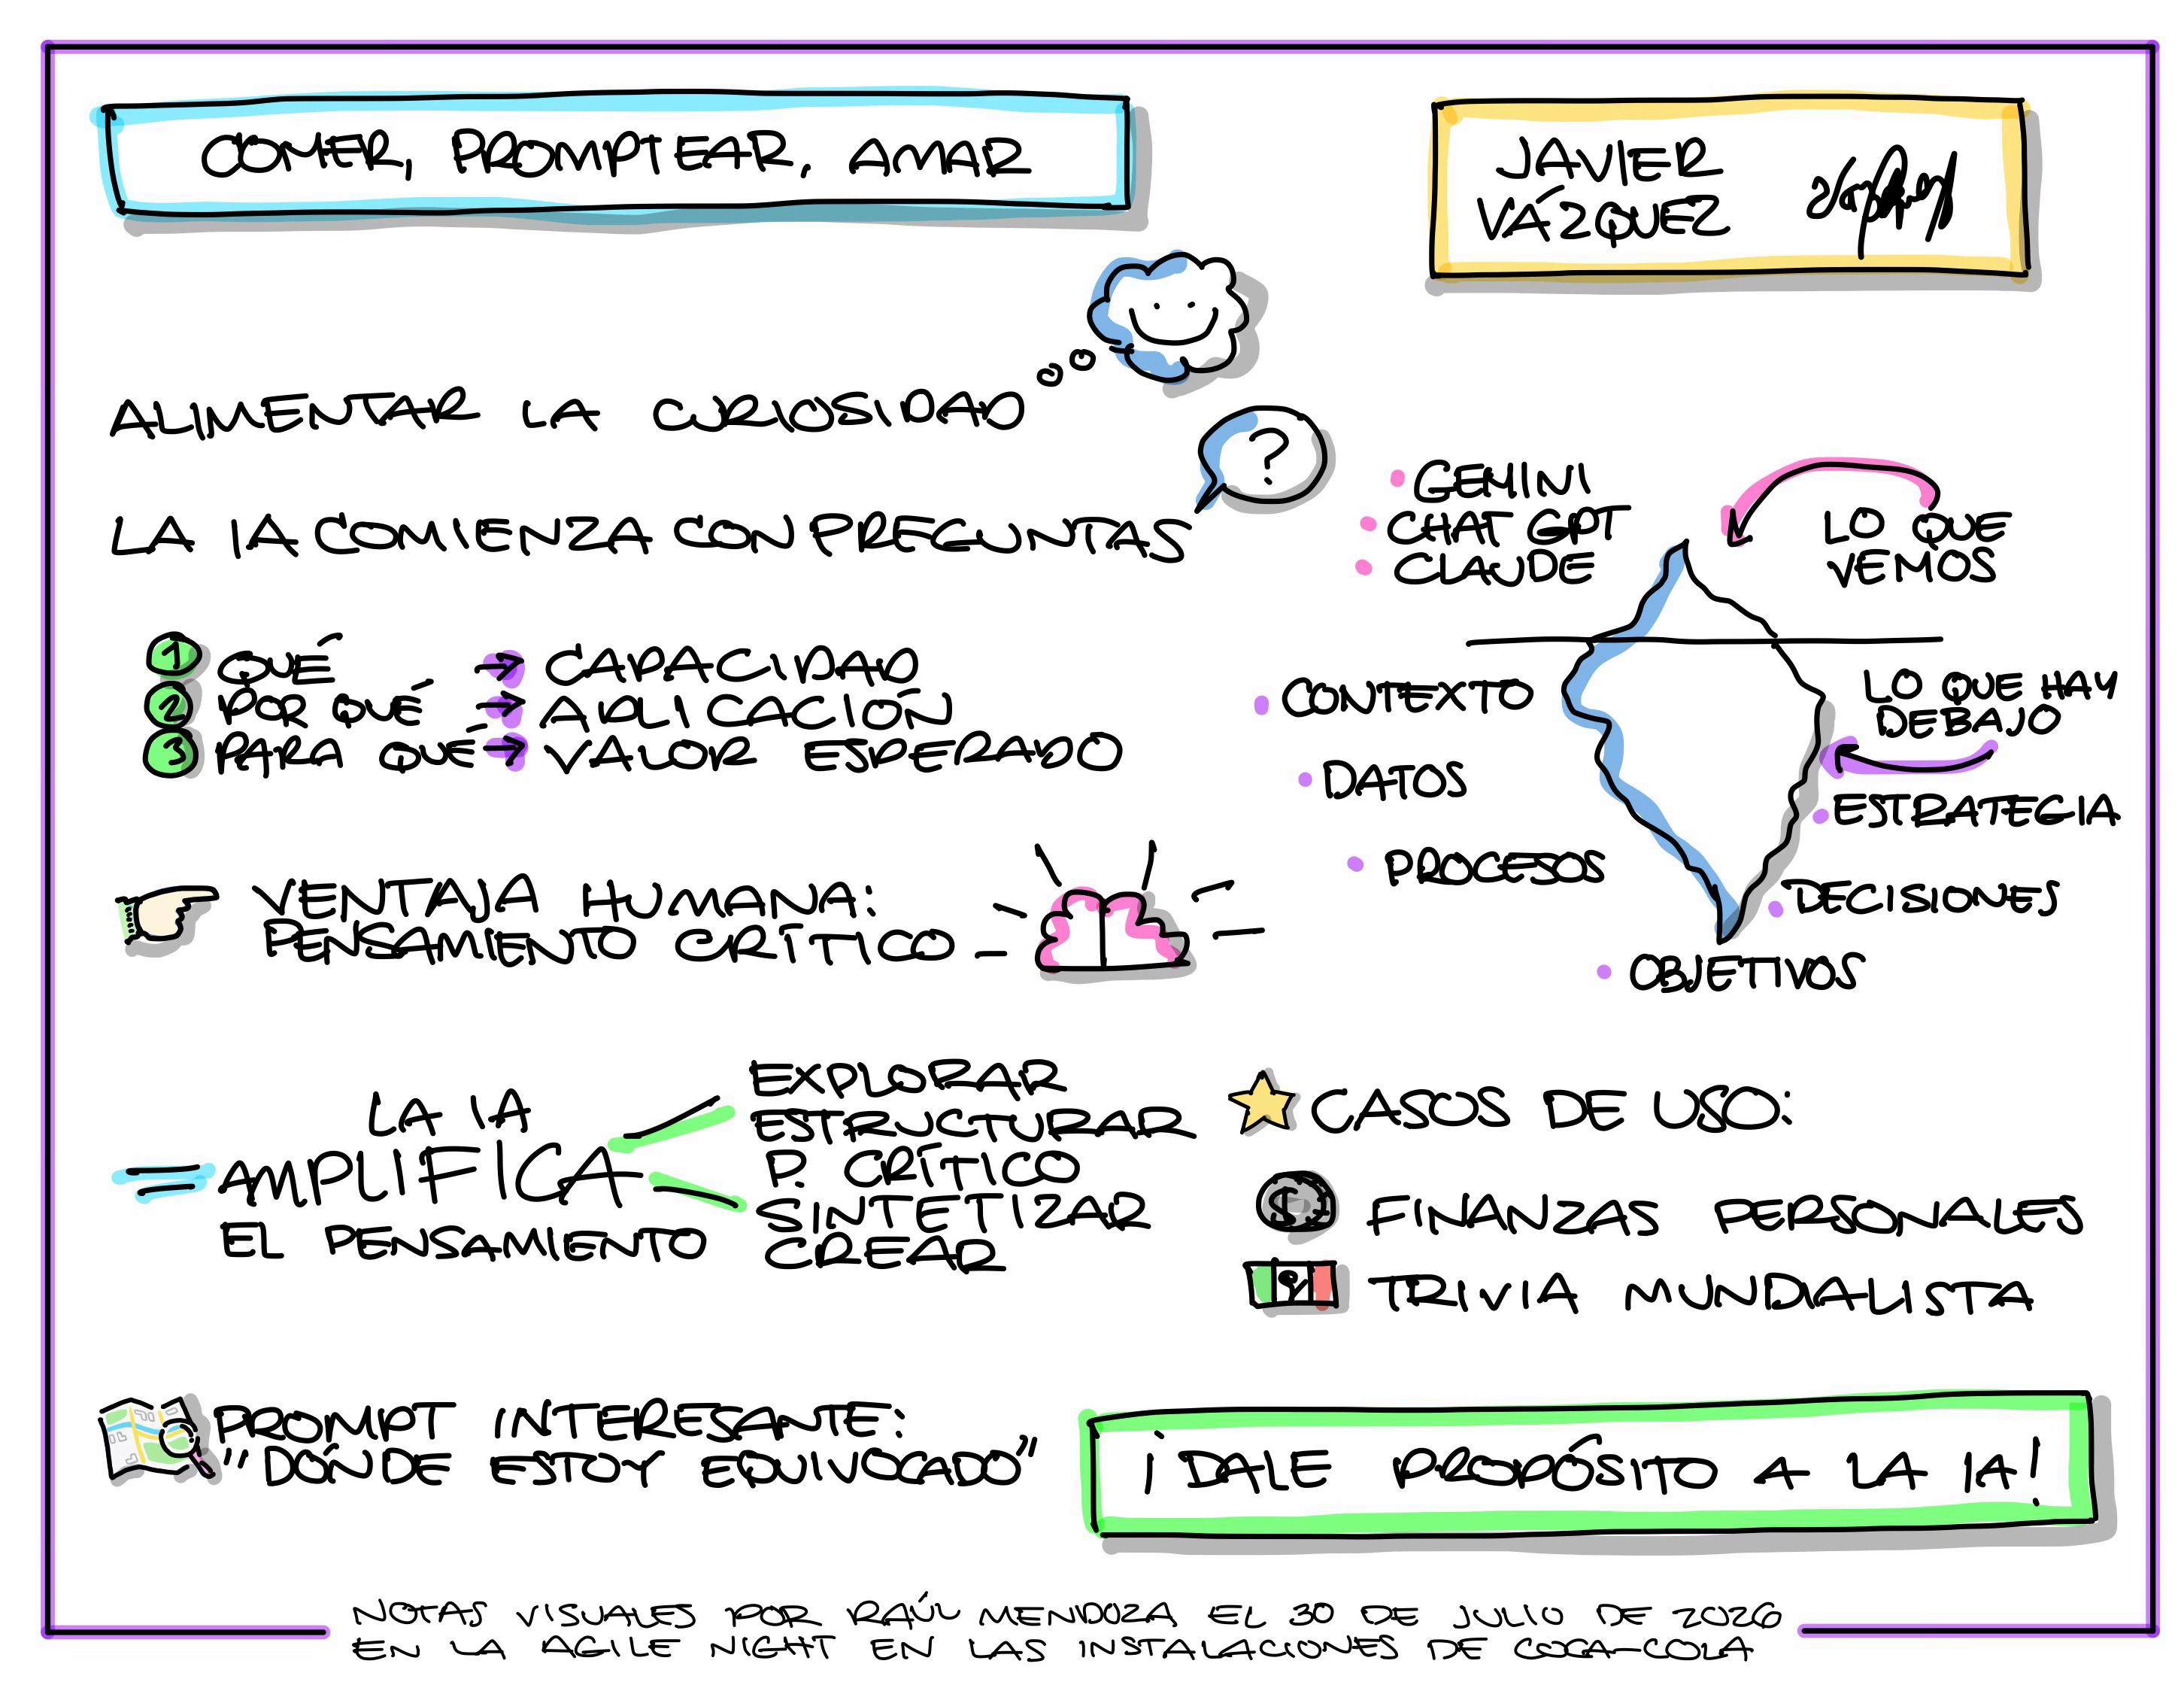 COMER, PROMPTEAR, AMAR
JAVIER
VÁZQUEZ
ALIMENTAR LA CURIOSIDAD
?
LA IA COMIENZA CON PREGUNTAS
1 QUÉ → CAPACIDAD
2 POR QUÉ → APLICACIÓN
3 PARA QUÉ → VALOR ESPERADO
• GEMINI
• CHAT GPT
• CLAUDE
LO QUE
VEMOS
• CONTEXTO
• DATOS
• PROCESOS
LO QUE HAY
DEBAJO
• ESTRATEGIA
• DECISIONES
• OBJETIVOS
VENTAJA HUMANA:
PENSAMIENTO CRÍTICO
LA IA
AMPLIFICA
EL PENSAMIENTO
EXPLORAR
ESTRUCTURAR
P. CRÍTICO
SINTETIZAR
CREAR
CASOS DE USO:
$ FINANZAS PERSONALES
TRIVIA MUNDIALISTA
PROMPT INTERESANTE:
"DÓNDE ESTOY EQUIVOCADO"
¡DALE PROPÓSITO A LA IA!
NOTAS VISUALES POR RAÚL MENDOZA EL 30 DE JULIO DE 2026
EN LA AGILE NIGHT EN LAS INSTALACIONES DE COCA-COLA